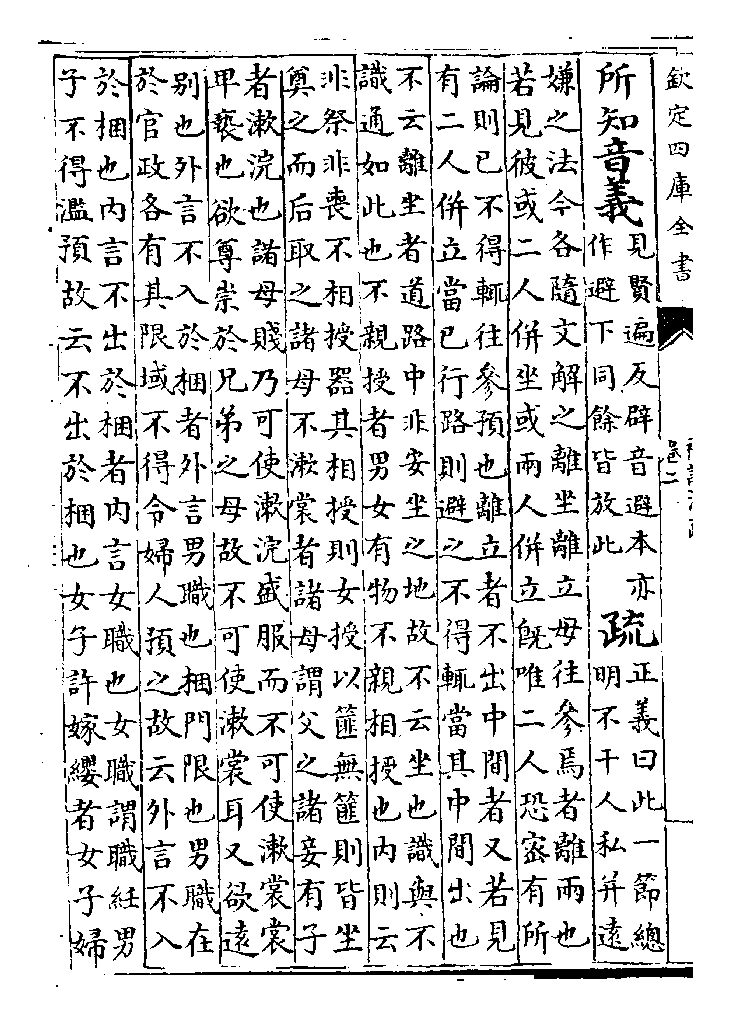 欽定四庫全書
卷二
所知音義
見賢遍反辟音避本亦
作避下同餘皆放此
疏
正義曰此一節總
明不干人私并遠
嫌之法今各隨文解之離坐離立毋往參焉者離兩也
若見彼或二人併坐或兩人併立既唯二人恐密有所
論則已不得輒往參預也離立者不出中間者又若見
有二人併立當已行路則避之不得輒當其中間出也
不云離坐者道路中非安坐之地故不云坐也識與不
識通如此也不親授者男女有物不親相授也内則云
非祭非喪不相授器其相授則女授以篚無篚則皆坐
奠之而后取之諸母不漱裳者諸母謂父之諸妾有子
者漱浣也諸母賤乃可使漱浣盛服而不可使漱裳裳
卑褻也欲尊崇於兄弟之母故不可使漱裳耳又欲遠
别也外言不入於梱者外言男職也梱門限也男職在
於官政各有其限域不得令婦人預之故云外言不入
於梱也内言不出於梱者内言女職也女職謂職紝男
子不得濫預故云不出於梱也女子許嫁纓者女子婦